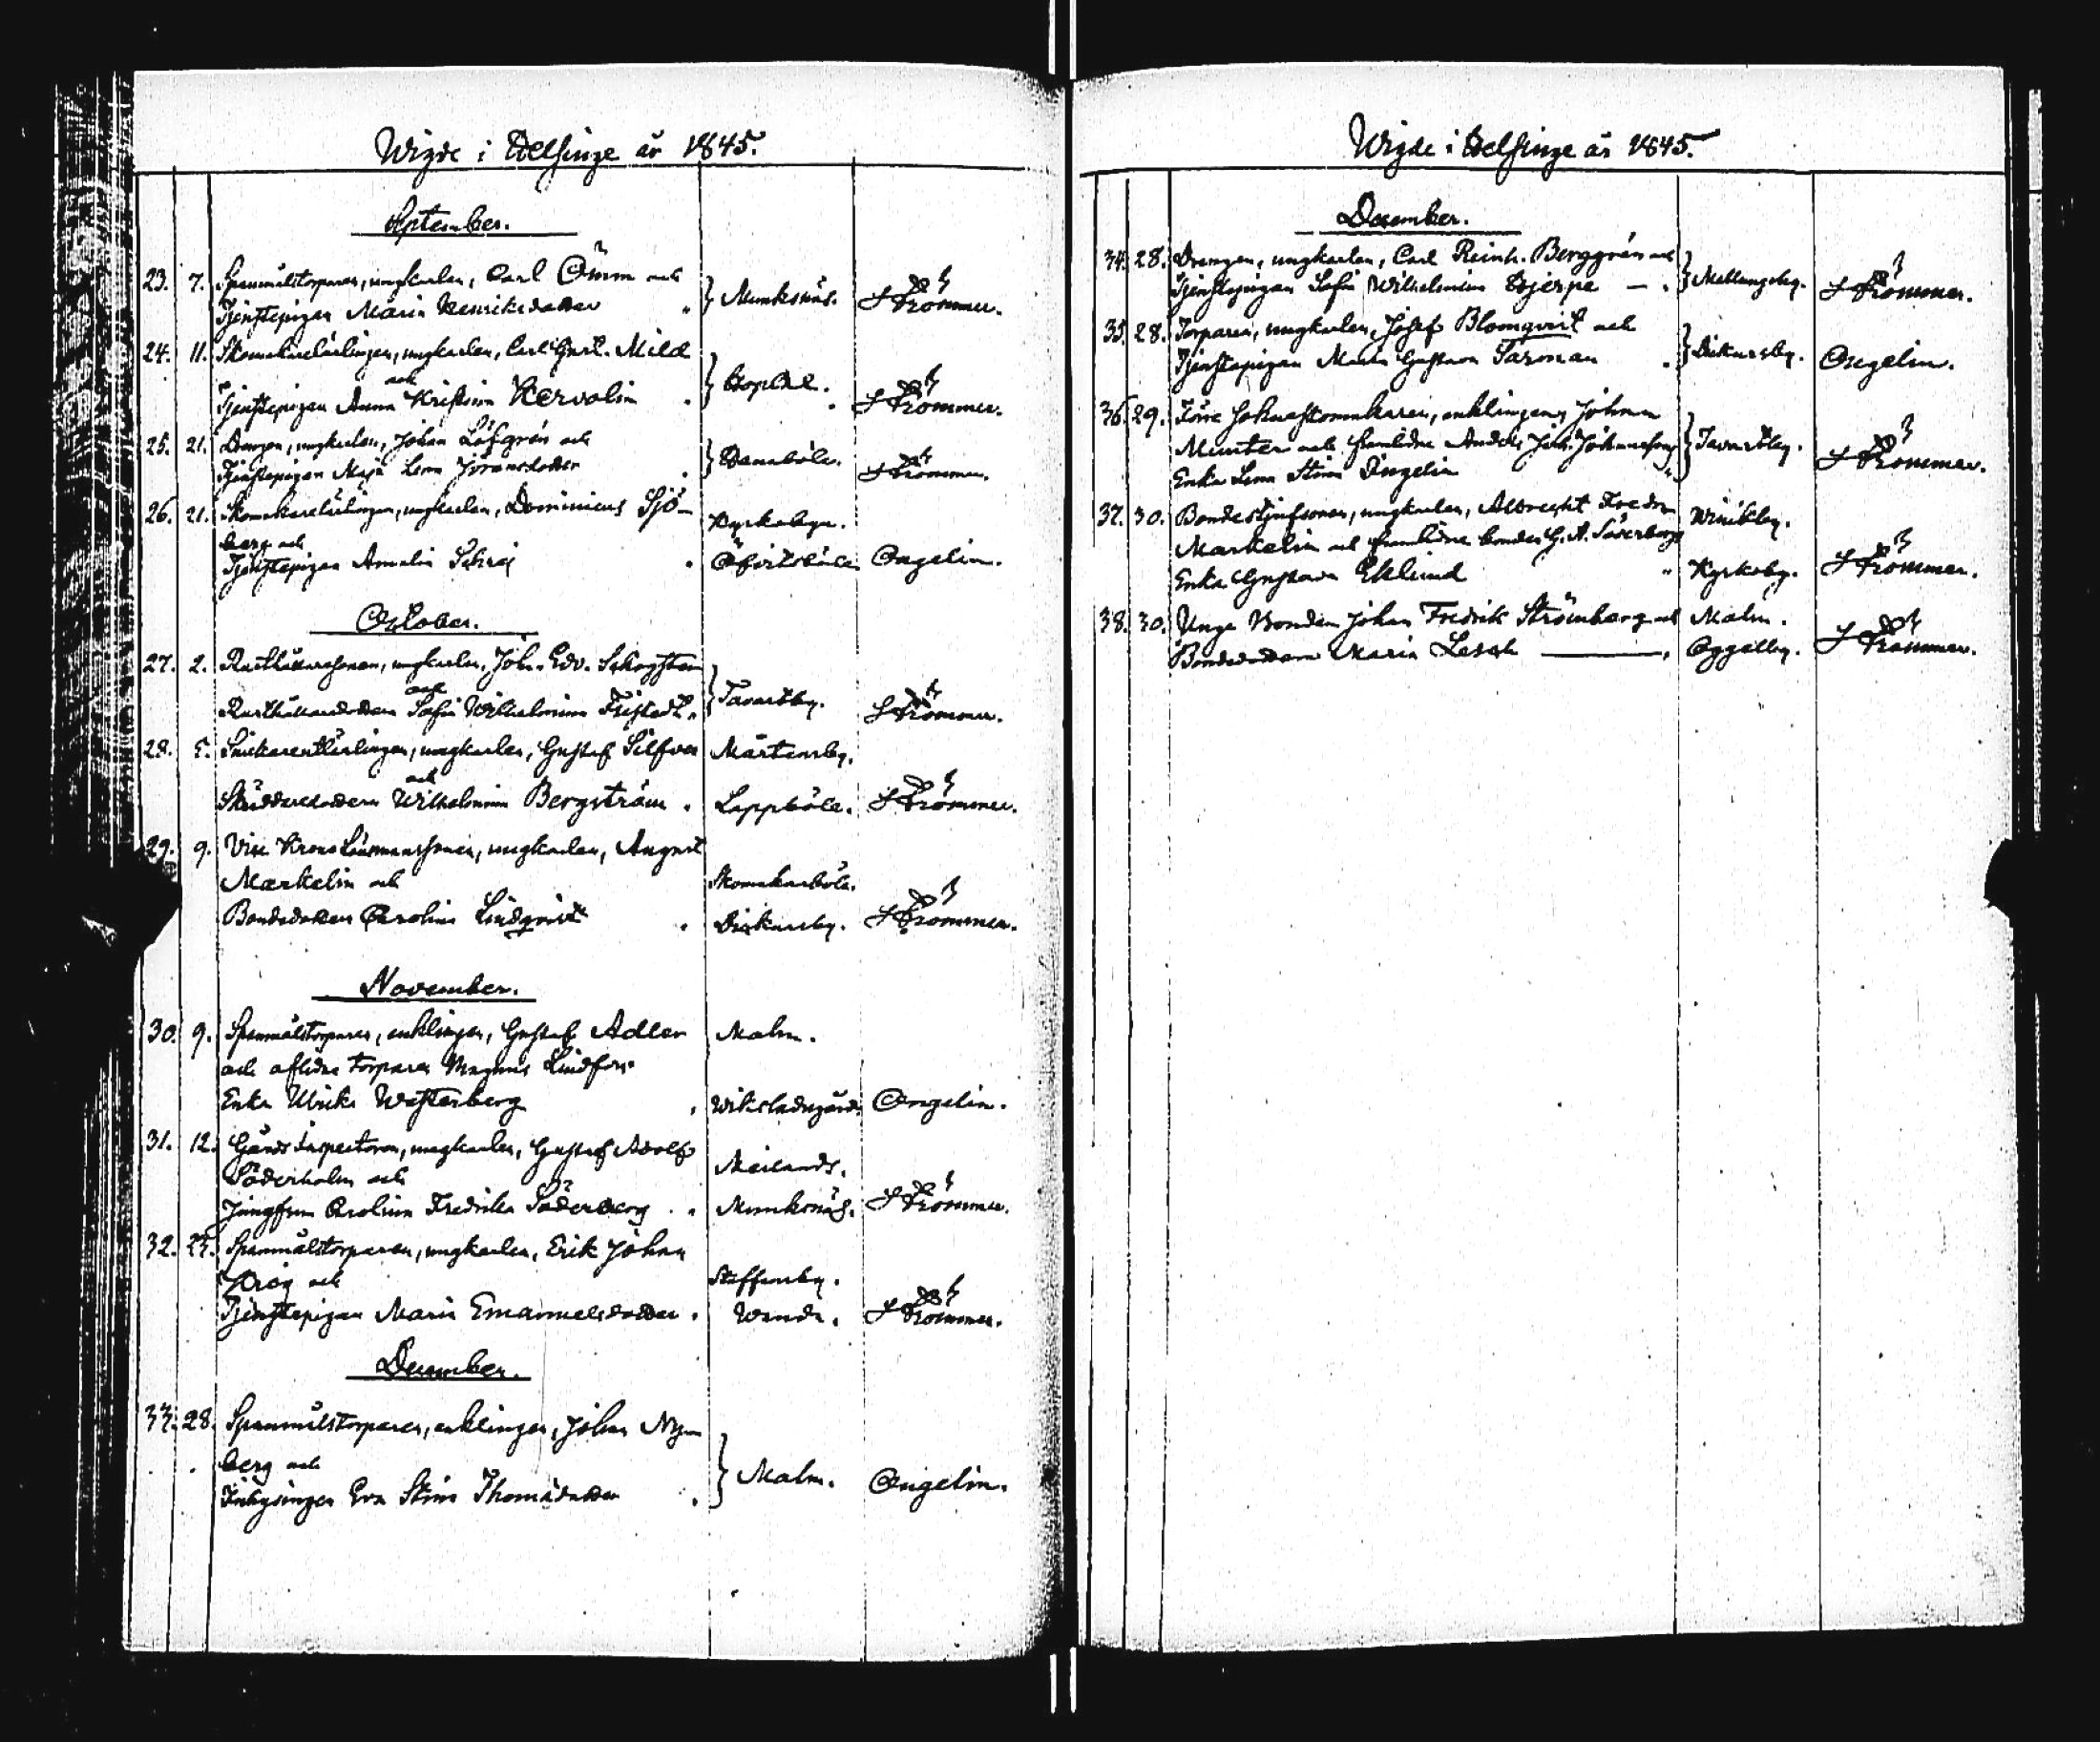 Wigde i Helsinge år 1845.
September.
23. 7. Spanmålstorparen, ungkarlen, Carl Öman och
Tjenstepigan Maria Henriksdotter " } Munksnäs. Strömmer.
24. 11. Skomakarelärlingen, ungkarlen, Carl Gust. Mild
och
Tjenstepigan Anna Kristina Kervolin . } Hoplax. Strömmer.
25. 21. Drengen, ungkarlen, Johan Löfgrén och
Tjenstepigan Maja Lena Göransdotter . } Dansböle. Strömmer.
26. 21. Skomakarelärlingen, ungkarlen, Dominicus Sjö- Kyrkobyn.
berg och
Tjenstepigan Amalia . Öfvitsböle Ongelin.
October.
27. 2. Rusthållaresonen, ungkarlen, Joh. Edv. Skogster
och
Rusthållaredottern Sofia Wilhelmina Fristedt " } Tavastby. Strömmer.
28. 5. Snickarelärlingen, ungkarlen, Gustaf Silfver Mårtensby.
och
Skräddaredottern Wilhelmina Bergström . Lappböle. Strömmer.
29. 9. Vice Krono Länsmanssonen, ungkarlen, August
Markelin och Skomakarböle.
Bondedottern Carolina Lindqvist . Dickursby. Strömmer.
November.
30. 9. Spanmålstorparen, enklingen, Gustaf Adler Malm.
och aflidne torparen Magnus Lindfors
Enka Ulrika Westerberg , Wiksladugård. Ongelin.
31. 12. Gårds Inspectoren, ungkarlen, Gustaf Adolf
Söderholm och Meilands.
Jungfrun Carolina Fredrika Söderberg . . Munksnäs. Strömmer.
32. 23. Spanmålstorparen, ungkarlen, Erik Johan
och Staffansby.
Tjenstepigan Maria Emanuelsdotter . Wanda. Strömmer.
December.
33. 28. Spanmålstorparen, enklingen, Johan Ny-
berg och
Inhysingen Eva Stina Thomasdotter . } Malm. Ongelin.
Wigde i Helsinge år 1845.
December.
34. 28. Drengen, ungkarlen, Carl Reinh. Berggrén och
Tjenstepigan Sofia Wilhelmina Hjerpe — . } Mellungsby. Strömmer.
35. 28. Torparen, ungkarlen, Josef Blomqvist och
Tjenstepigan Maria Gustava Forsman . } Dickursby. Ongelin.
36. 29. Förre Sockneskomakaren, enklingen, Johan
Munter och framlidne Anders Joh. Johanssons } Tavastby. Strömmer.
Enka Lena Stina Ingelin "
37. 30. Bondestjufsonen, ungkarlen, Albrecht Fredr. Winikby.
Markelin och framlidne bonden G. A. Söderbergs
Enka Gustava Eklund " Kyrkoby. Strömmer.
38. 30. Unge Bonden Johan Fredrik Strömberg och Malm.
Bondedottern Maria Lesch — , Åggelby. Strömmer.